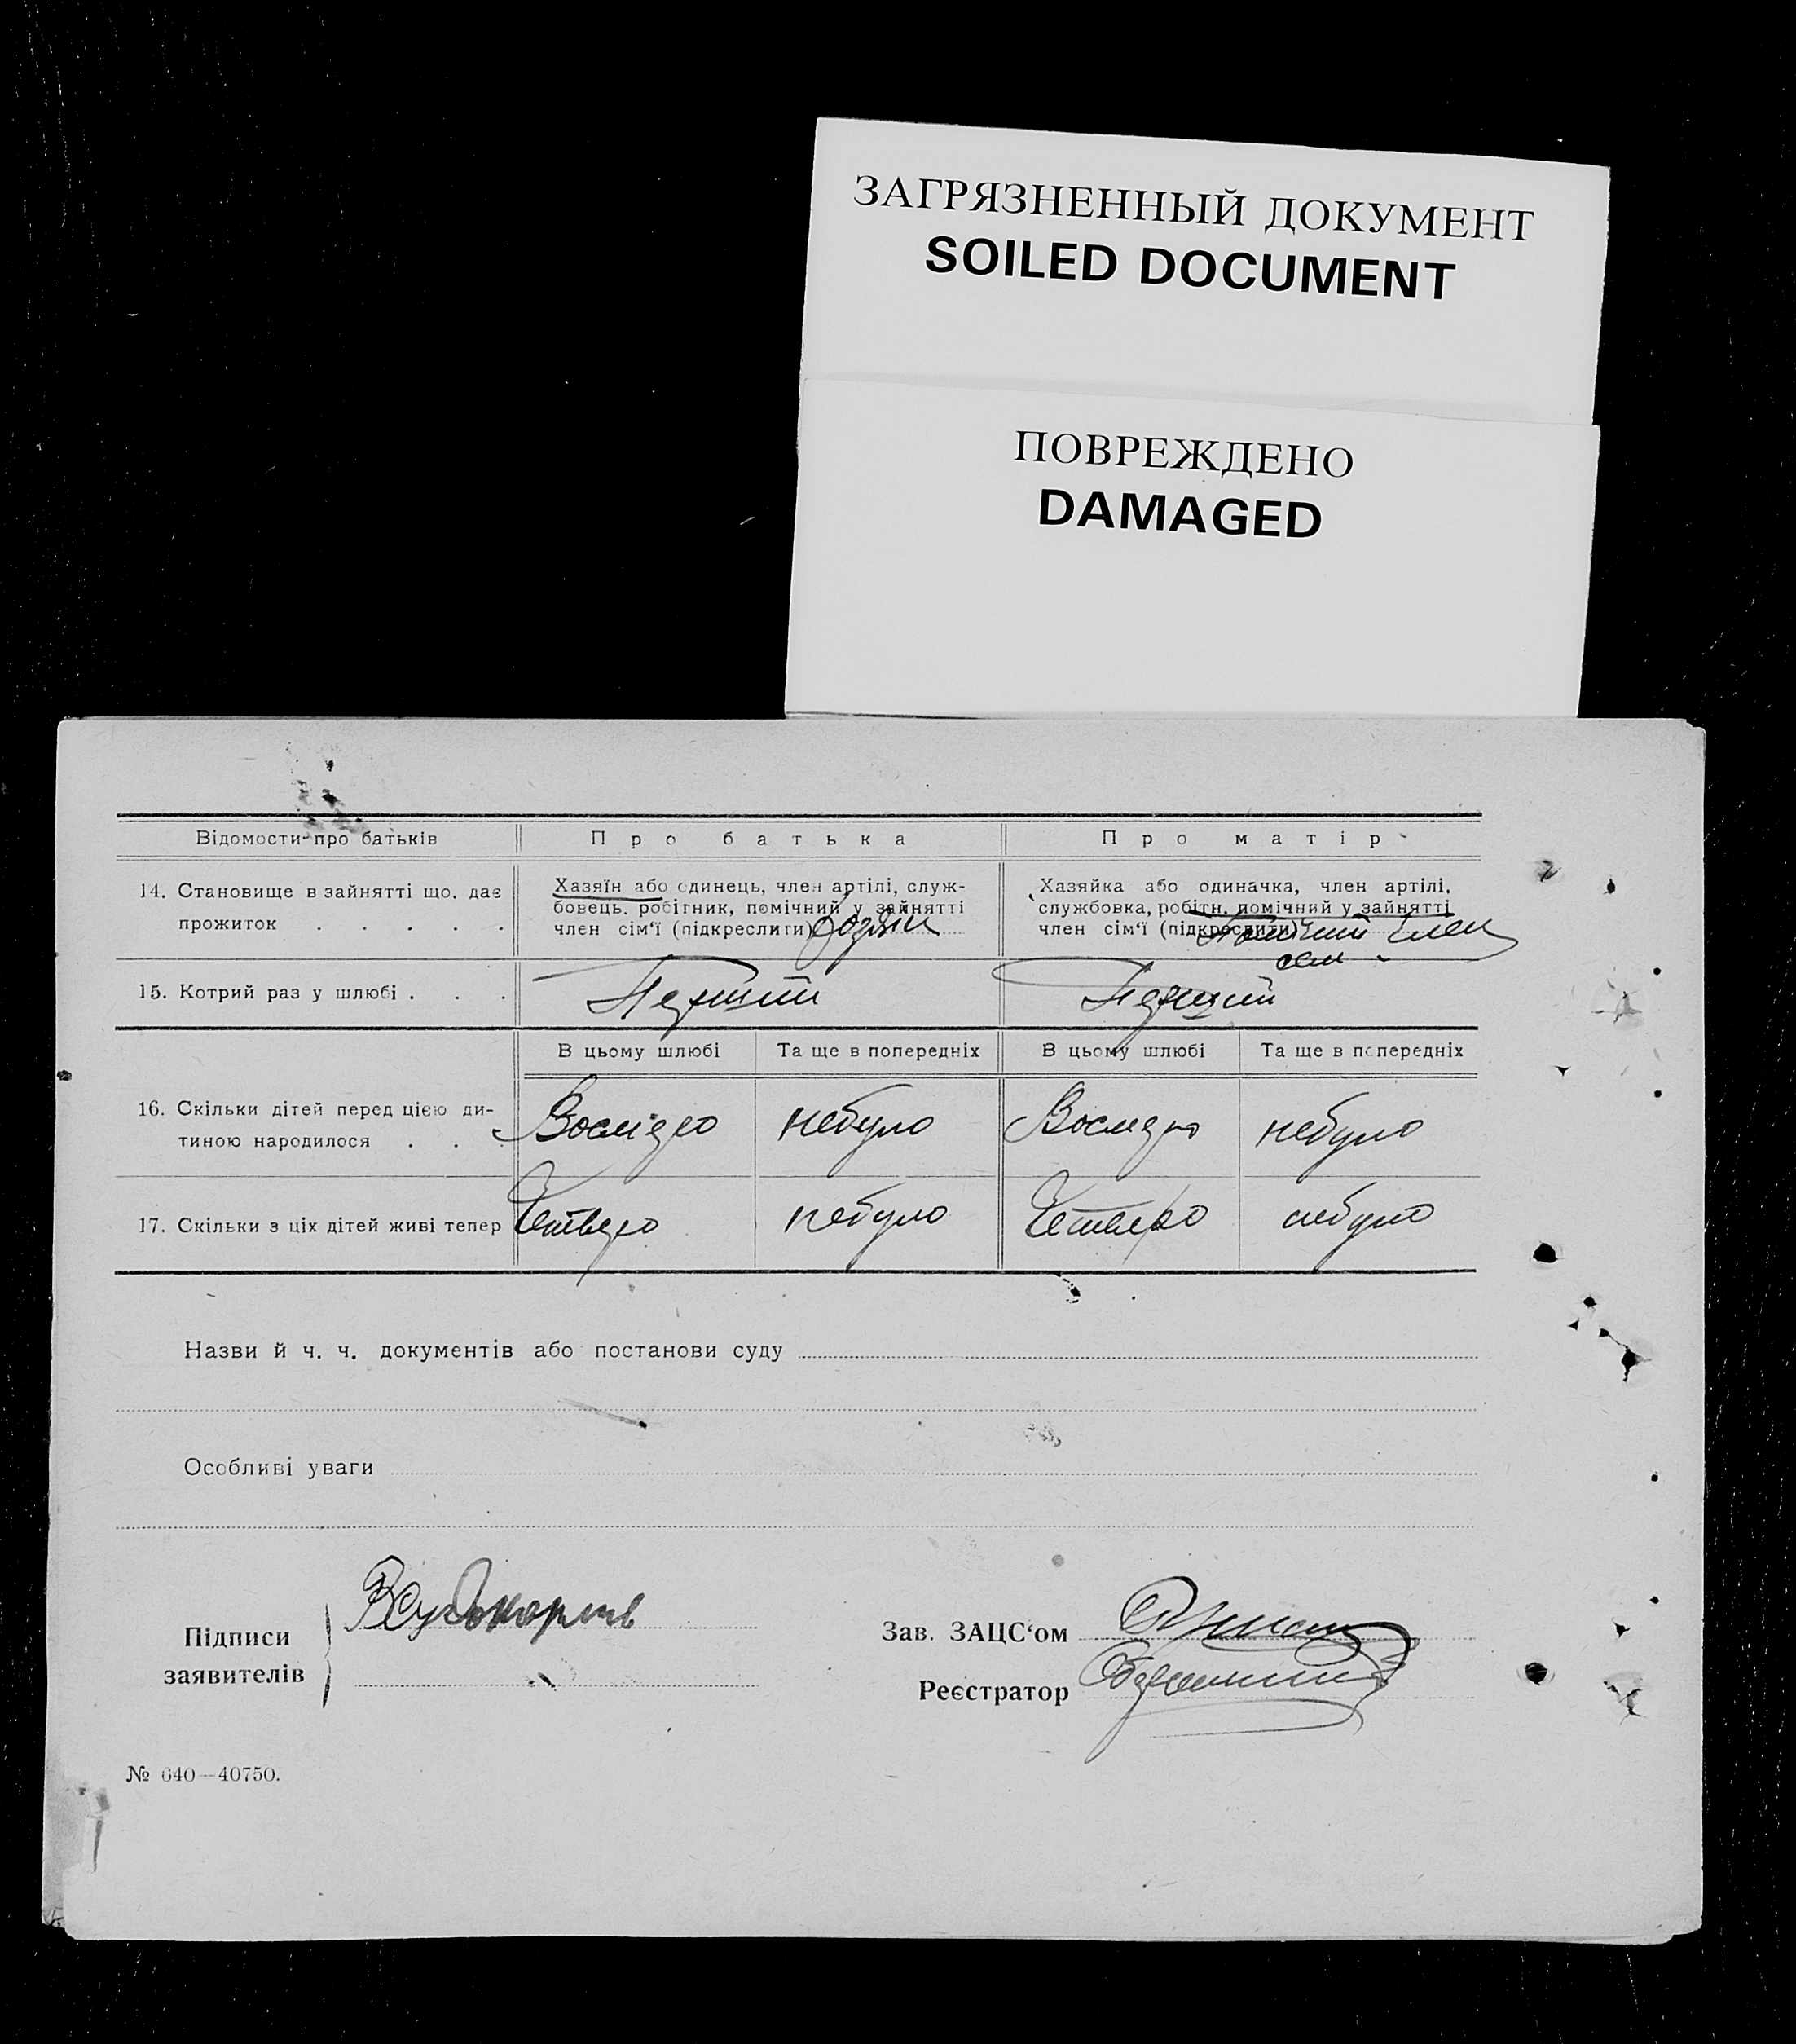 ЗАГРЯЗНЕННЫЙ ДОКУМЕНТ
SOILED DOCUMENT
ПОВРЕЖДЕНО
DAMAGED
Відомости про батьків Про батька Про матір
14. Становище в зайнятті що, дає прожиток . . . . .
Хазяїн або одинець, член артілі, служ-
бовець, робітник, помічний у зайнятті
член сім'ї (підкреслити) хозяін
Хазяйка або одиначка, член артілі,
службовка, робітн. помічний у зайнятті
член сім'ї (підкреслити) Помічний член
сем.
15. Котрий раз у шлюбі . . . Перший Перший
В цьому шлюбі Та ще в попередніх В цьому шлюбі Та ще в попередніх
16. Скільки дітей перед цією ди-
тиною народилося . . . Восмеро небуло Восмеро небуло
17. Скільки з ціх дітей живі тепер Четверо небуло Четверо небуло
Назви й ч. ч. документів або постанови суду
Особливі уваги
Підписи
заявителів
Зав. ЗАЦС'ом
Реєстратор
№ 640—40750.